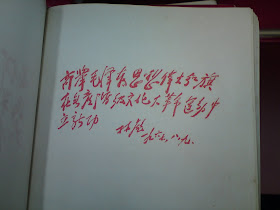 高举毛泽东思想伟大红旗
在无产阶级文化大革命运动中
立新功